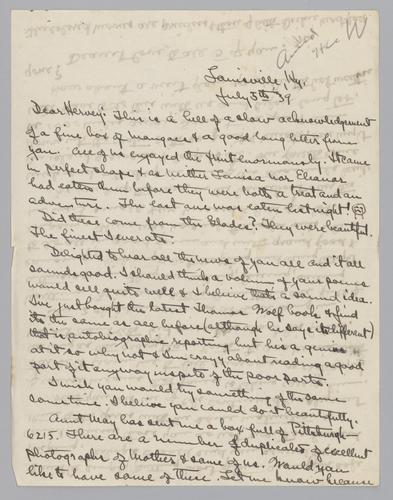 Louisville, Ky.
July 5th '39
Dear Hervey: This is a hell of a slow acknowledgement
of a fine box of mangoes & a good long letter from
you. All of us enjoyed the fruit enormously. It came
in perfect shape & as neither Louisa nor Eleanor
had eaten them before they were both a treat and an
adventure. The last one was eaten last night!
Did these come from the Glades? They were beautiful.
The finest I ever ate.
Delighted to hear all the news of you all and it all
sounds good. I should think a volume of your poems
would sell quite well & I believe that's a sound idea.
I've just bought the latest Thomas Wolf book & find
its the same as all before (although he says its different)
that is autobiographic reporting but he's a genius
at it so why not & I'm crazy about reading a good
part of it anyway in spite of the poor parts.
I wish you would try something of the same
sometime. I believe you could do it beautifully.
Aunt May has sent me a box full of Pittsburgh—
6215. There are a number of duplicates of excellent
photographs of Mother & some of us. Would you
like to have some of these. Let me know because